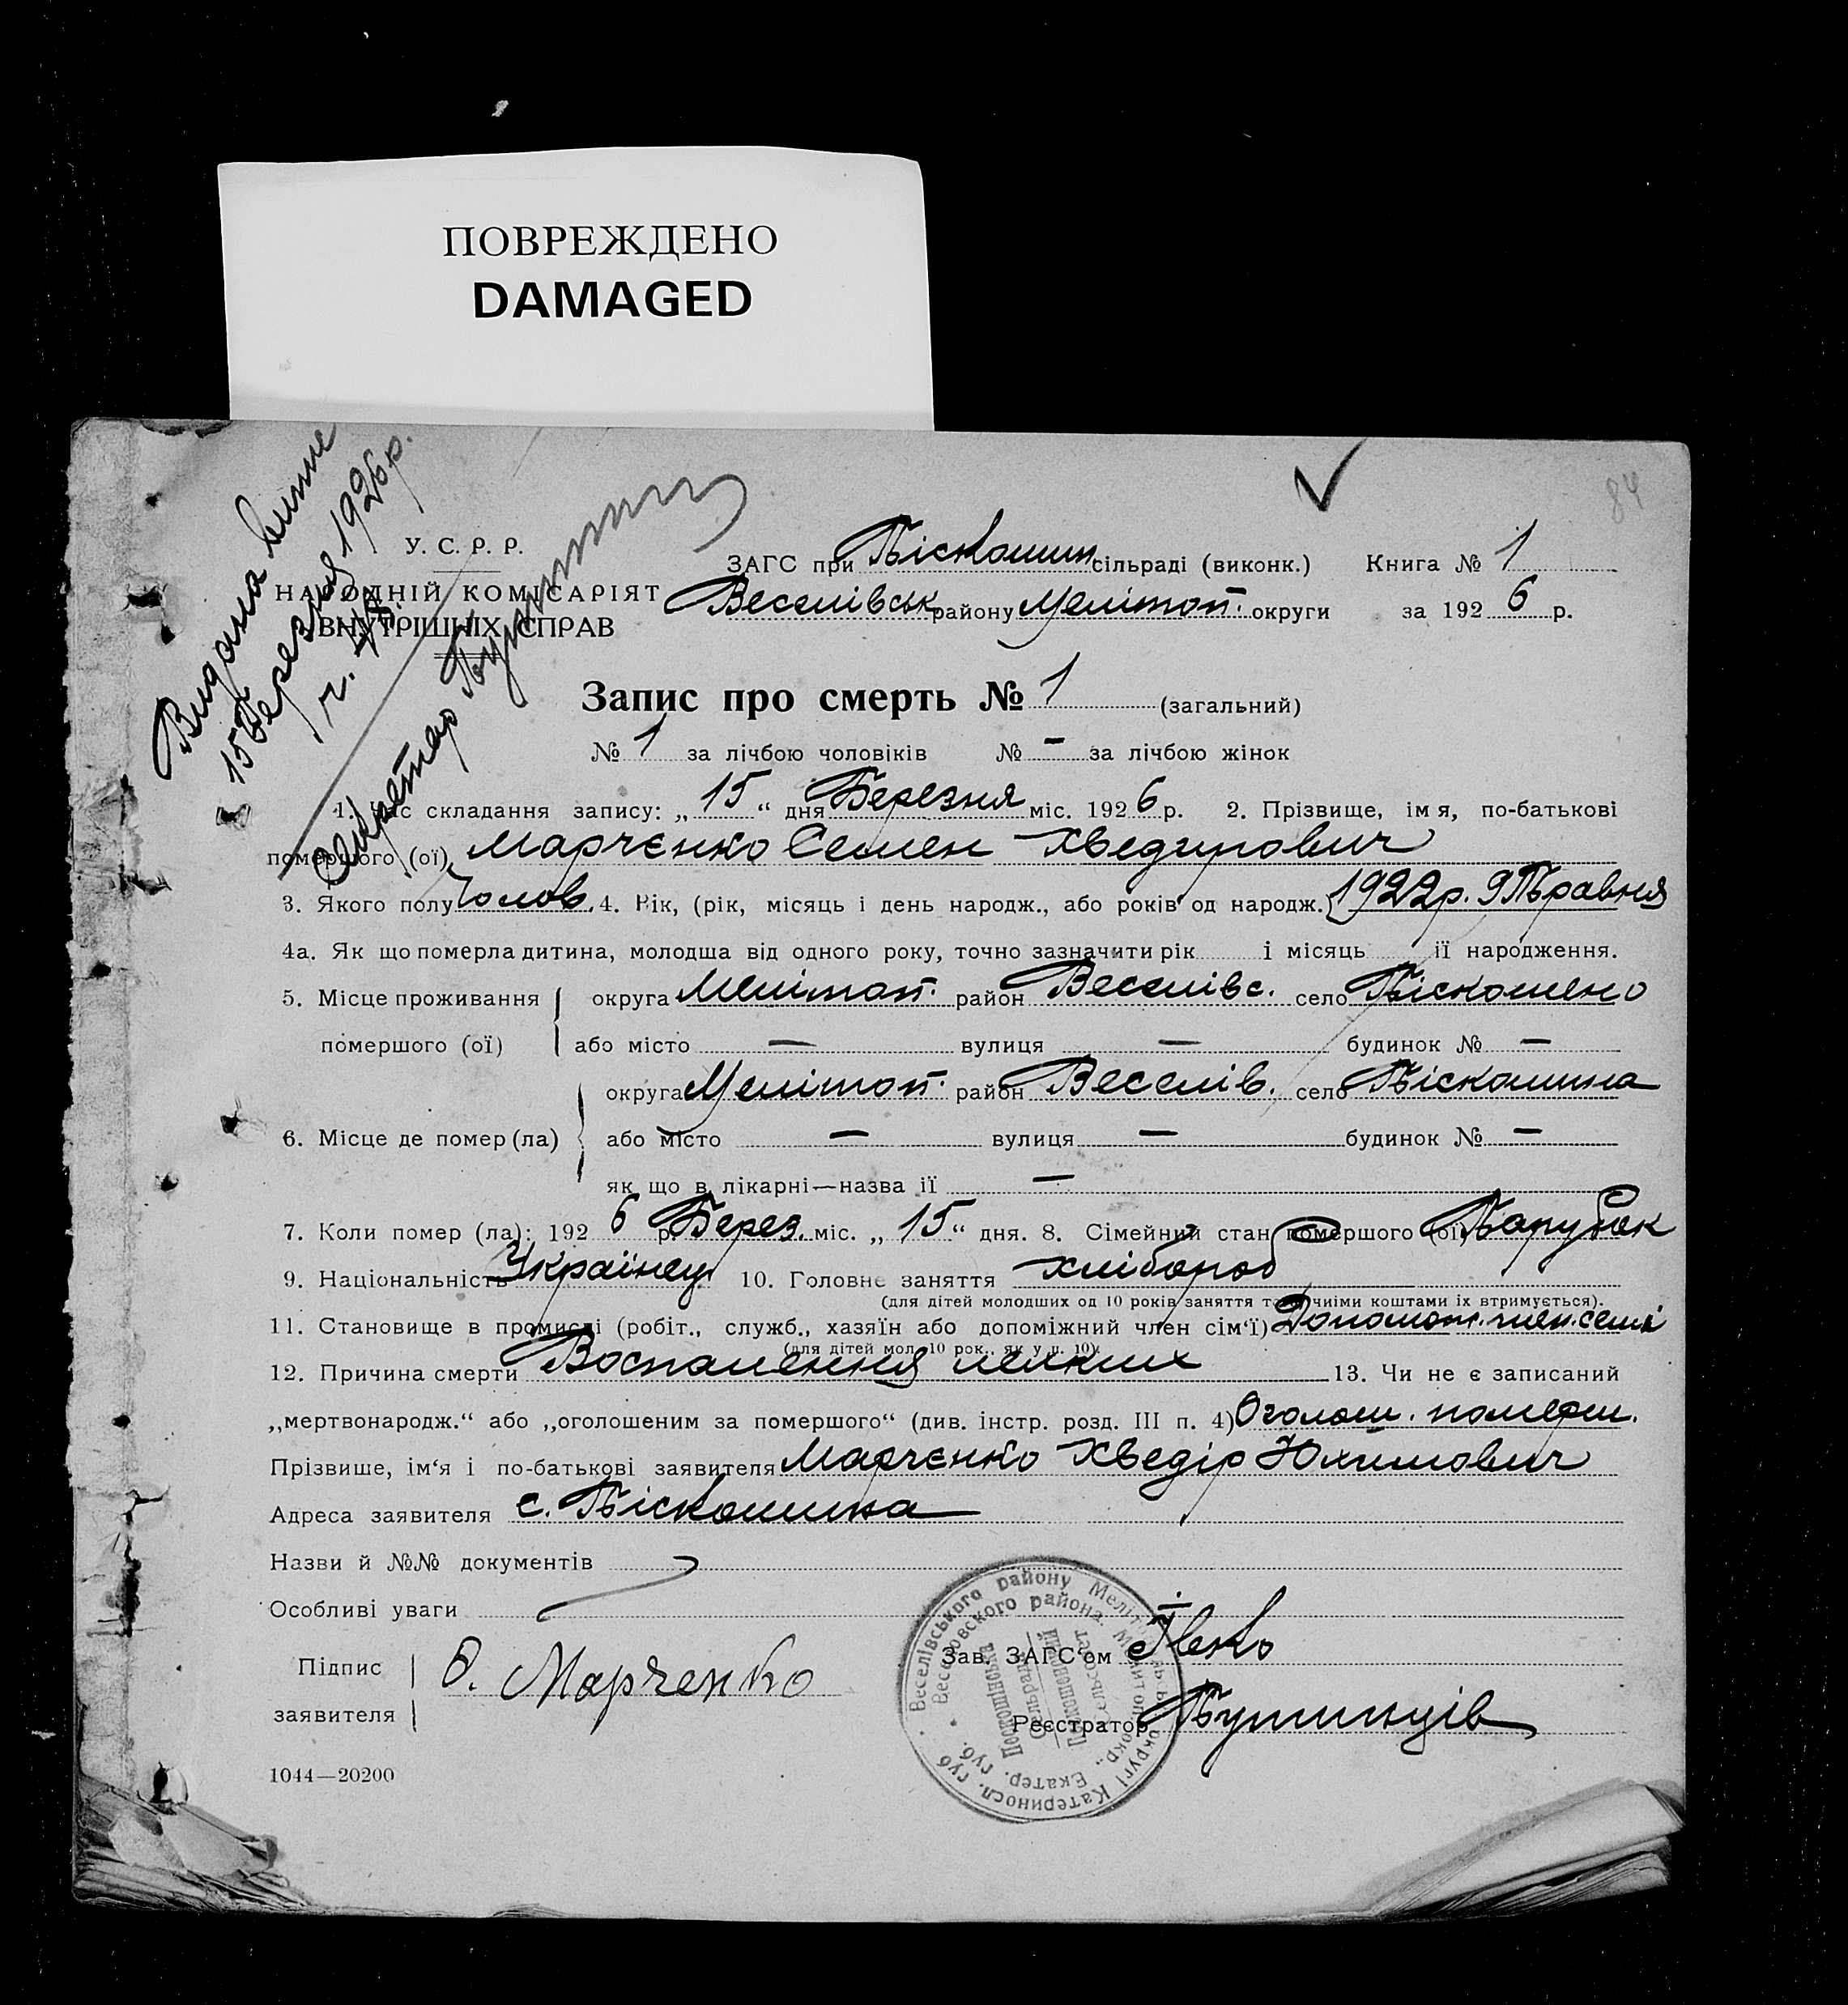 ПОВРЕЖДЕНО
DAMAGED
84
Видана випис
15 Березня 1926 р.
ч. 48.
Секретар
У. С. Р. Р.
НАРОДНІЙ КОМІСАРІЯТ
ВНУТРІШНІХ СПРАВ
ЗАГС при Піскошин сільраді (виконк.) Книга № 1
Веселівськ району Мелітоп. округи за 1926 р.
Запис про смерть № 1 (загальний)
№ 1 за лічбою чоловіків № — за лічбою жінок
1. Час складання запису: „15“ дня Березня міс. 1926 р. 2. Прізвище, імя, по-батькові
помершого (ої) Марченко Семен Хведирович
3. Якого полу Чолов. 4. Вік, (рік, місяць і день народж., або років од народж.) 1922 р. 9 Травня
4а. Як що померла дитина, молодша від одного року, точно зазначити рік і місяць її народження.
5. Місце проживання округа Мелітоп. район Веселівс. село Піскошено
помершого (ої) або місто — вулиця — будинок № —
округа Мелітоп. район Веселів. село Піскошина
6. Місце де помер (ла) або місто — вулиця — будинок № —
як що в лікарні—назва її —
7. Коли помер (ла): 1926 р. Берез. міс. „15“ дня. 8. Сімейний стан помершого (ої) Парубок
9. Національність Українец 10. Головне заняття хлібороб
(для дітей молодших од 10 років заняття то чиіми коштами їх втримується).
11. Становище в промислі (робіт., служб., хазяїн або допоміжний член сім'ї) Допомот. член. семі
(для дітей мол. 10 рок., як у п. 10).
12. Причина смерти Воспалення легких 13. Чи не є записаний
„мертвонародж.“ або „оголошеним за помершого“ (див. інстр. розд. III п. 4) Оголош. померш.
Прізвише, ім'я і по-батькові заявителя Марченко Хведір Юхимович
Адреса заявителя с. Піскошина
Назви й №№ документів
Особливі уваги
Підпис
заявителя
Ѳ. Марченко
Зав. ЗАГС'ом
Реєстратор
Веселівського району Меліт округі Катериносл. губ.
Веселовского района Мелитоп. окр., Екатер. губ.
1044—20200